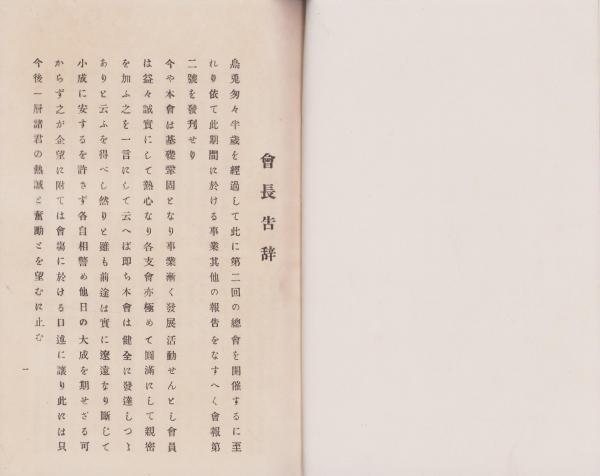 會長告辞
烏兎匆々半歳を經過して此に第二回の總會を開催するに至
れり依て此期間に於ける事業其他の報告をなすへく會報第
二號を發刊せり
今や本會は基礎鞏固となり事業漸く發展活動せんとし會員
は益々誠實にして熱心なり各支會亦極めて圓滿にして親密
を加ふ之を一言にして云へば卽ち本會は健全に發達しつゝ
ありと云ふを得べし然りと雖も前途は實に遼遠なり斷じて
小成に安するを許さず各自相警め他日の大成を期せざる可
からず之が企望に附ては會塲に於ける口述に讓り此には只
今後一層諸君の熱誠と奮勵とを望むに止む
一